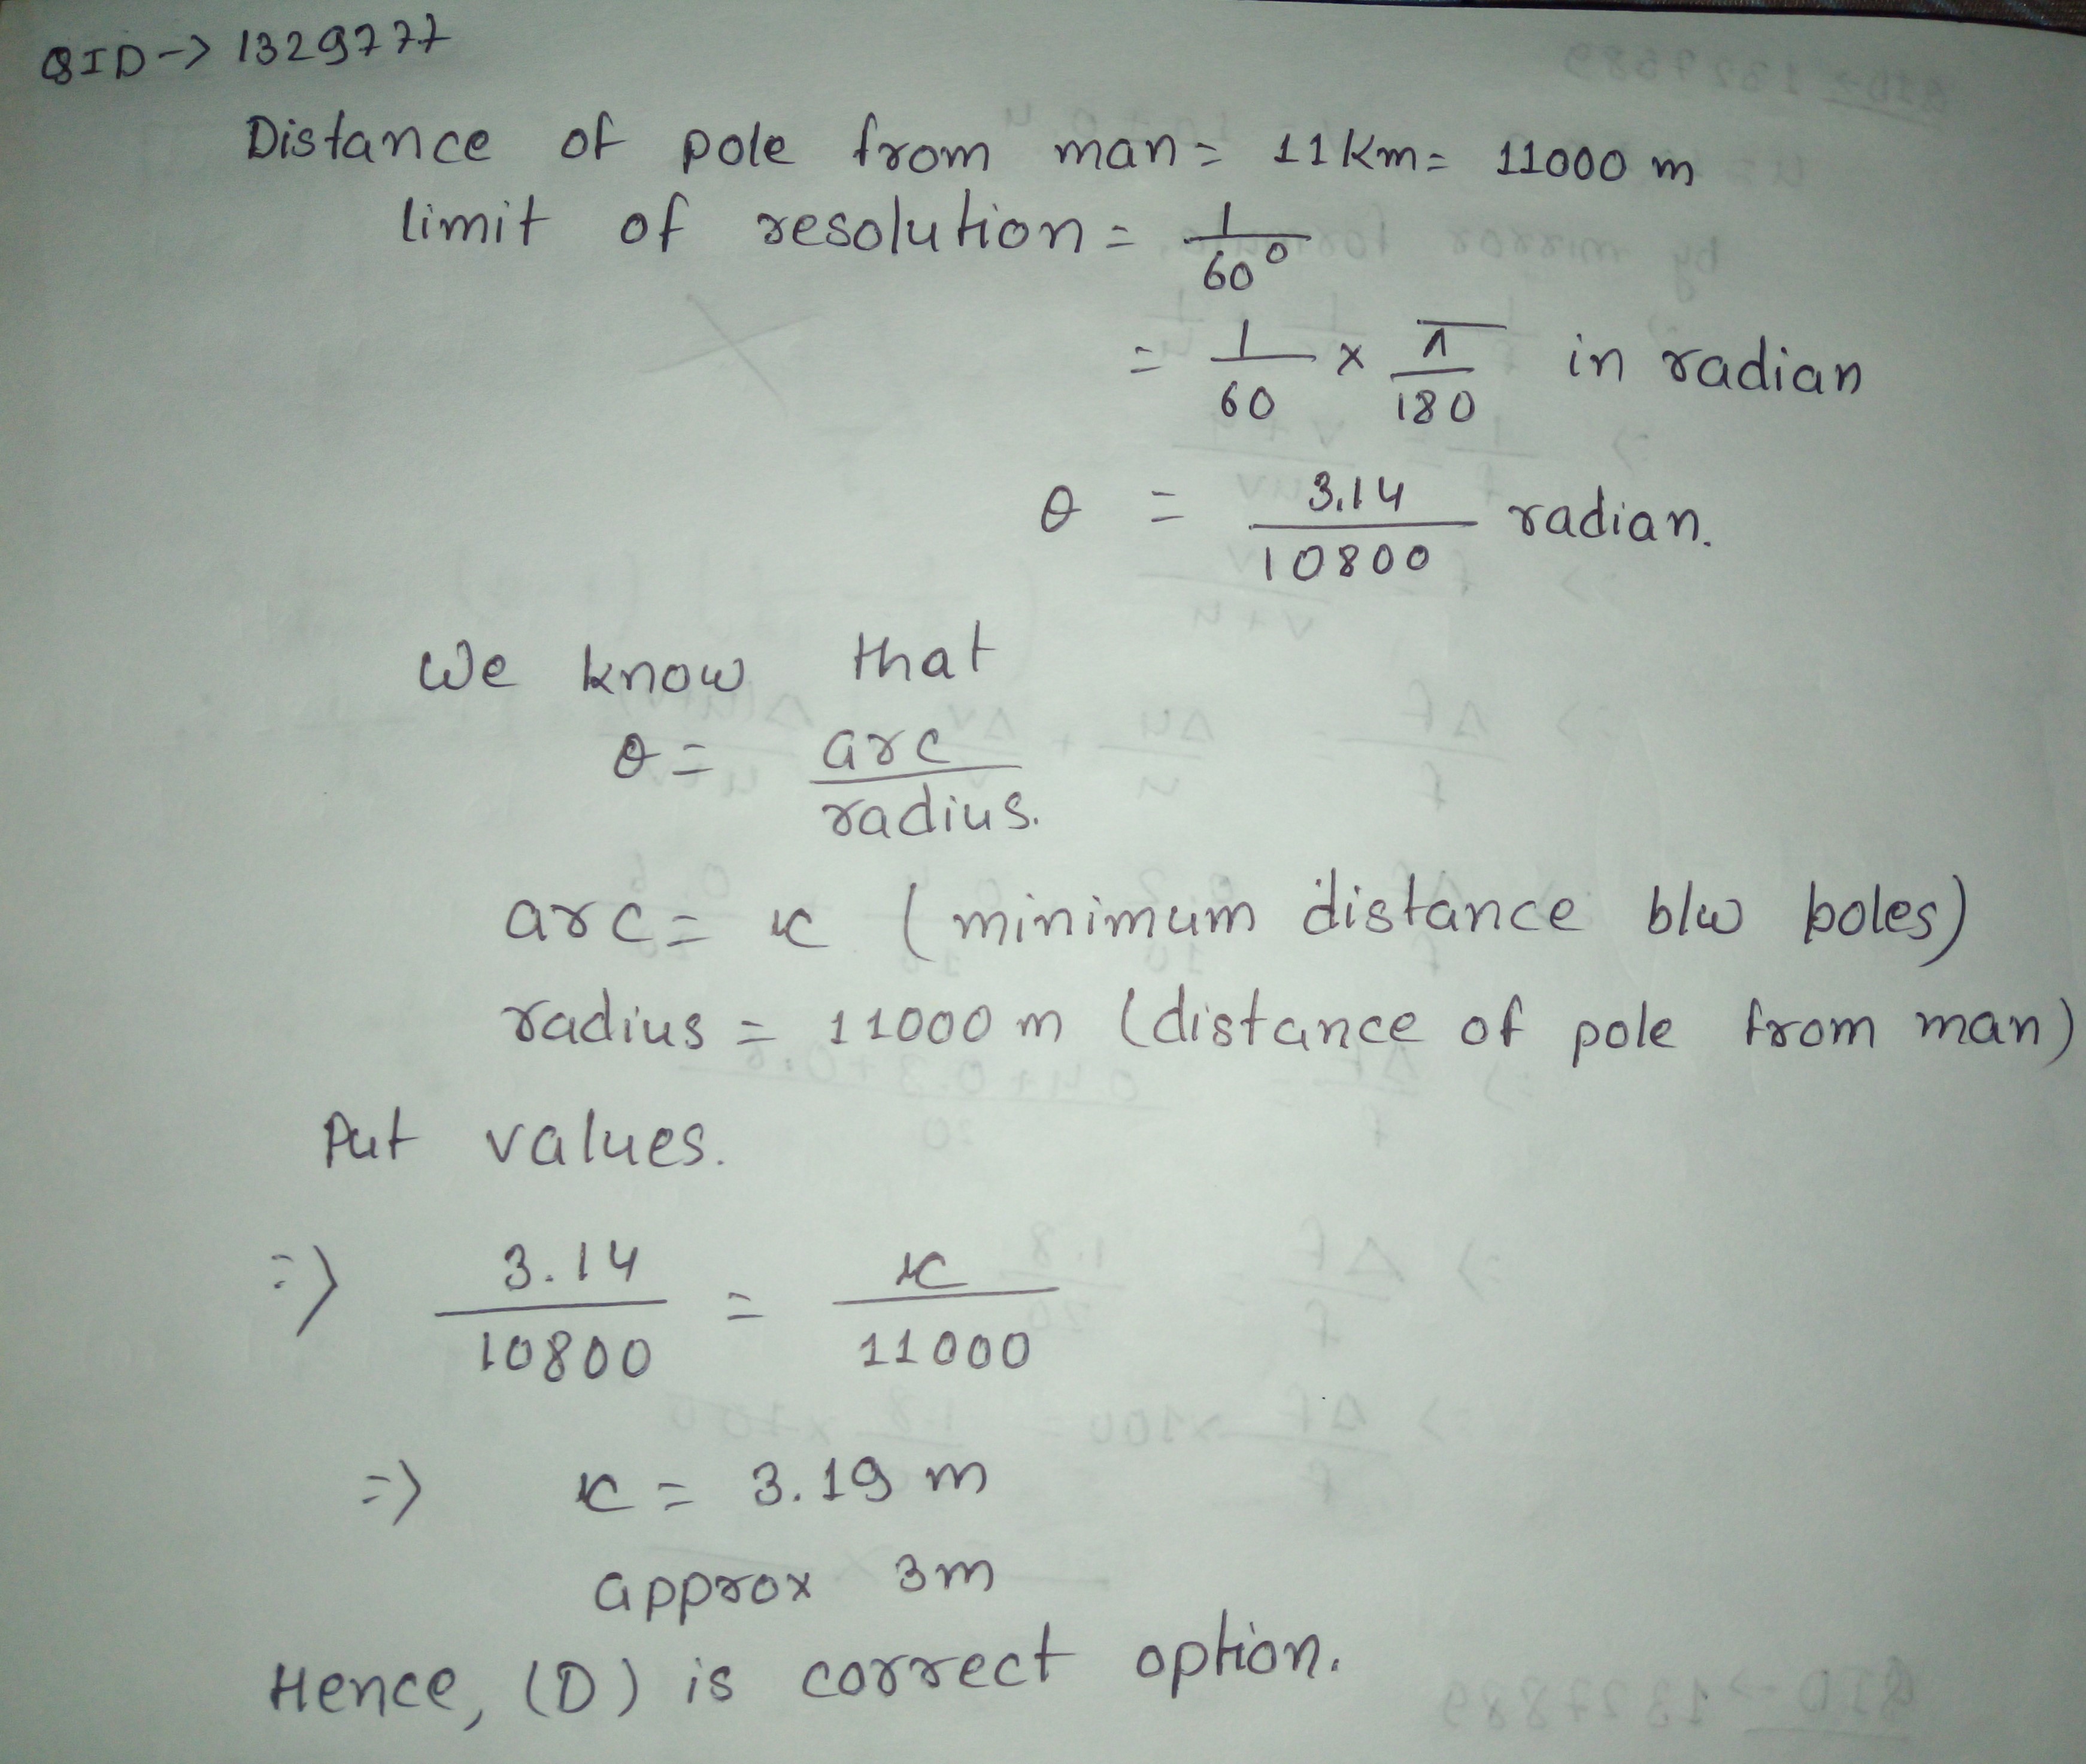 QID-> 1329777
Distance of pole from man = 11 km = 11000 m
limit of resolution = 1/60°
= 1/60 × π/180 in radian
θ = 3.14/10800 radian.
We know that
θ = arc/radius.
arc = x (minimum distance b/w poles)
radius = 11000 m (distance of pole from man)
Put values.
=> 3.14/10800 = x/11000
=> x = 3.19 m
approx 3m
Hence, (D) is correct option.